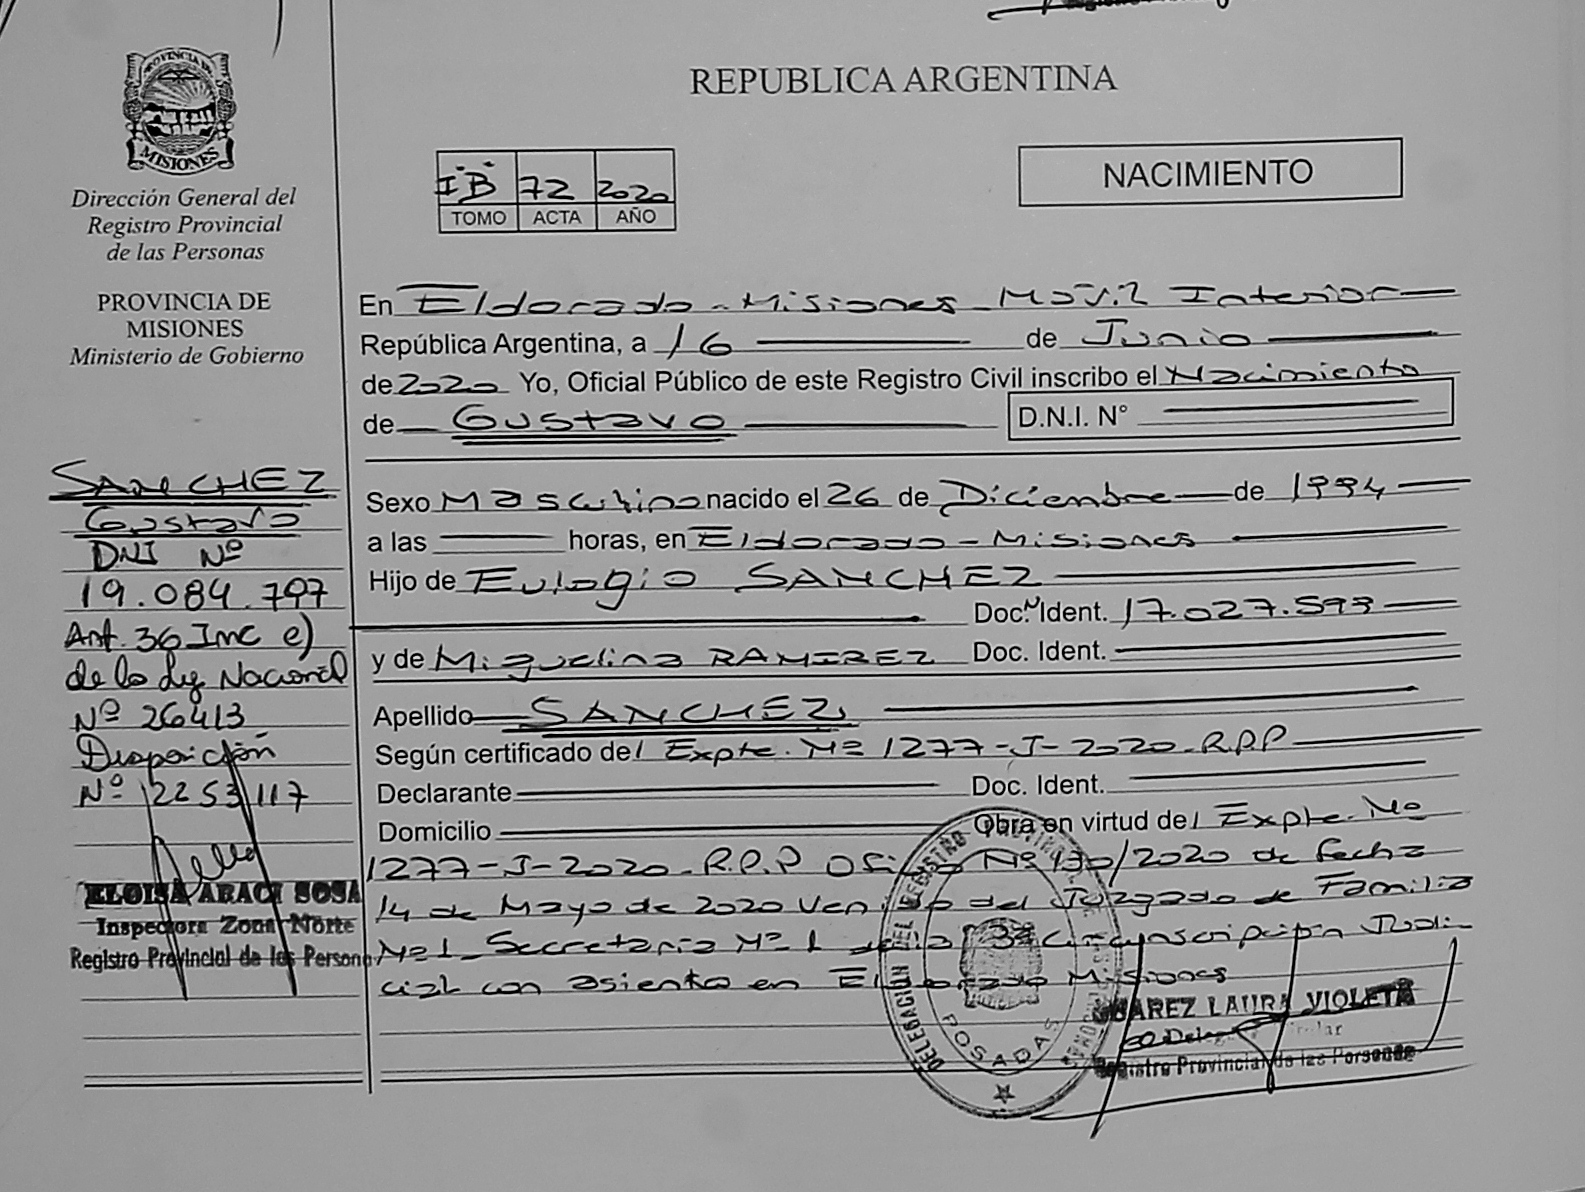 PROVINCIA DE
MISIONES
Dirección General del
Registro Provincial
de las Personas
PROVINCIA DE
MISIONES
Ministerio de Gobierno
SANCHEZ
Gustavo
DNI Nº
19.084.797
Art. 36 Inc e)
de la Ley Nacional
Nº 26413
Disposición
Nº 2253/117
ELOISA ARACI SOSA
Inspectora Zona Norte
Registro Provincial de las Persona
REPUBLICA ARGENTINA
IB 72 2020
TOMO ACTA AÑO
NACIMIENTO
En Eldorado - Misiones Móvil Interior
República Argentina, a 16 de Junio
de 2020 Yo, Oficial Público de este Registro Civil inscribo el Nacimiento
de Gustavo D.N.I. N°
Sexo Masculino nacido el 26 de Diciembre de 1994
a las horas, en Eldorado - Misiones
Hijo de Eulogio SANCHEZ
Doc. Ident. 17.027.593
y de Miguelina RAMIREZ Doc. Ident.
Apellido SANCHEZ
Según certificado del Expte. Nº 1277-J-2020-R.P.P
Declarante Doc. Ident.
Domicilio Obra en virtud del Expte. Nº
1277-J-2020-R.P.P Oficio Nº 130/2020 de fecha
14 de Mayo de 2020 Venido del Juzgado de Familia
Nº1 Secretaria Nº 1 de la 3ª Circunscripción Judi-
cial con asiento en Eldorado Misiones
DELEGACIÓN DEL REGISTRO PROVINCIAL
POSADAS
SUAREZ LAURA VIOLETA
Registro Provincial de las Personas